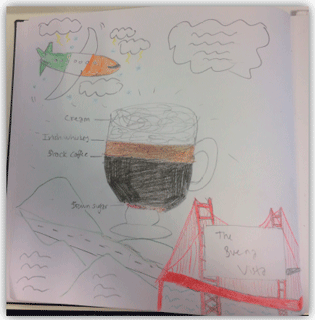 Cream
Irish whiskey
Black Coffee
Brown sugar
The
Buena
Vista